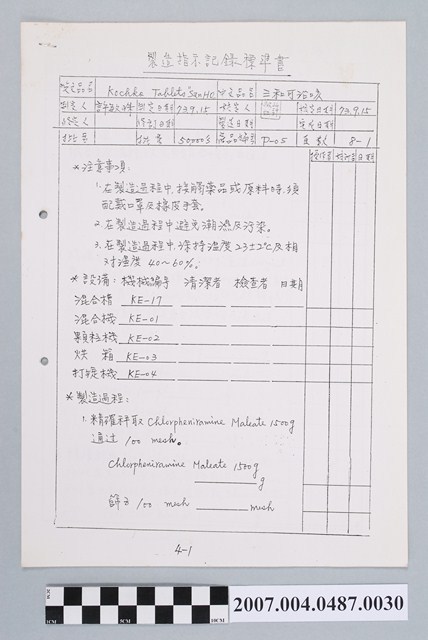 製造指示記錄標準書
英文品名 Kochke Tablets "San Ho" 中文品名 三和可治咳
制定人 制定日期 73.9.15 核定人 核定日期 73.9.15
批號 批量 50000s 產品編號 P-05 頁數 8-1
操作者 核對者 日期
*注意事項:
1.在製造過程中,接觸藥品或原料時,須
配戴口罩及橡皮手套。
2.在製造過程中避免潮濕及污染。
3.在製造過程中,保持溫度23±2℃及相
对溼度 40~60%。
*設備: 機械編号 清潔者 檢查者 日期
混合槽 KE-17
混合機 KE-01
顆粒機 KE-02
烘箱 KE-03
打錠機 KE-04
*製造過程:
1.精確秤取 Chlorpheniramine Maleate 1500g
通过 100 mesh。
Chlorpheniramine Maleate 1500g
g
篩子 100 mesh mesh
4-1
CM 5CM 10CM
2007.004.0487.0030